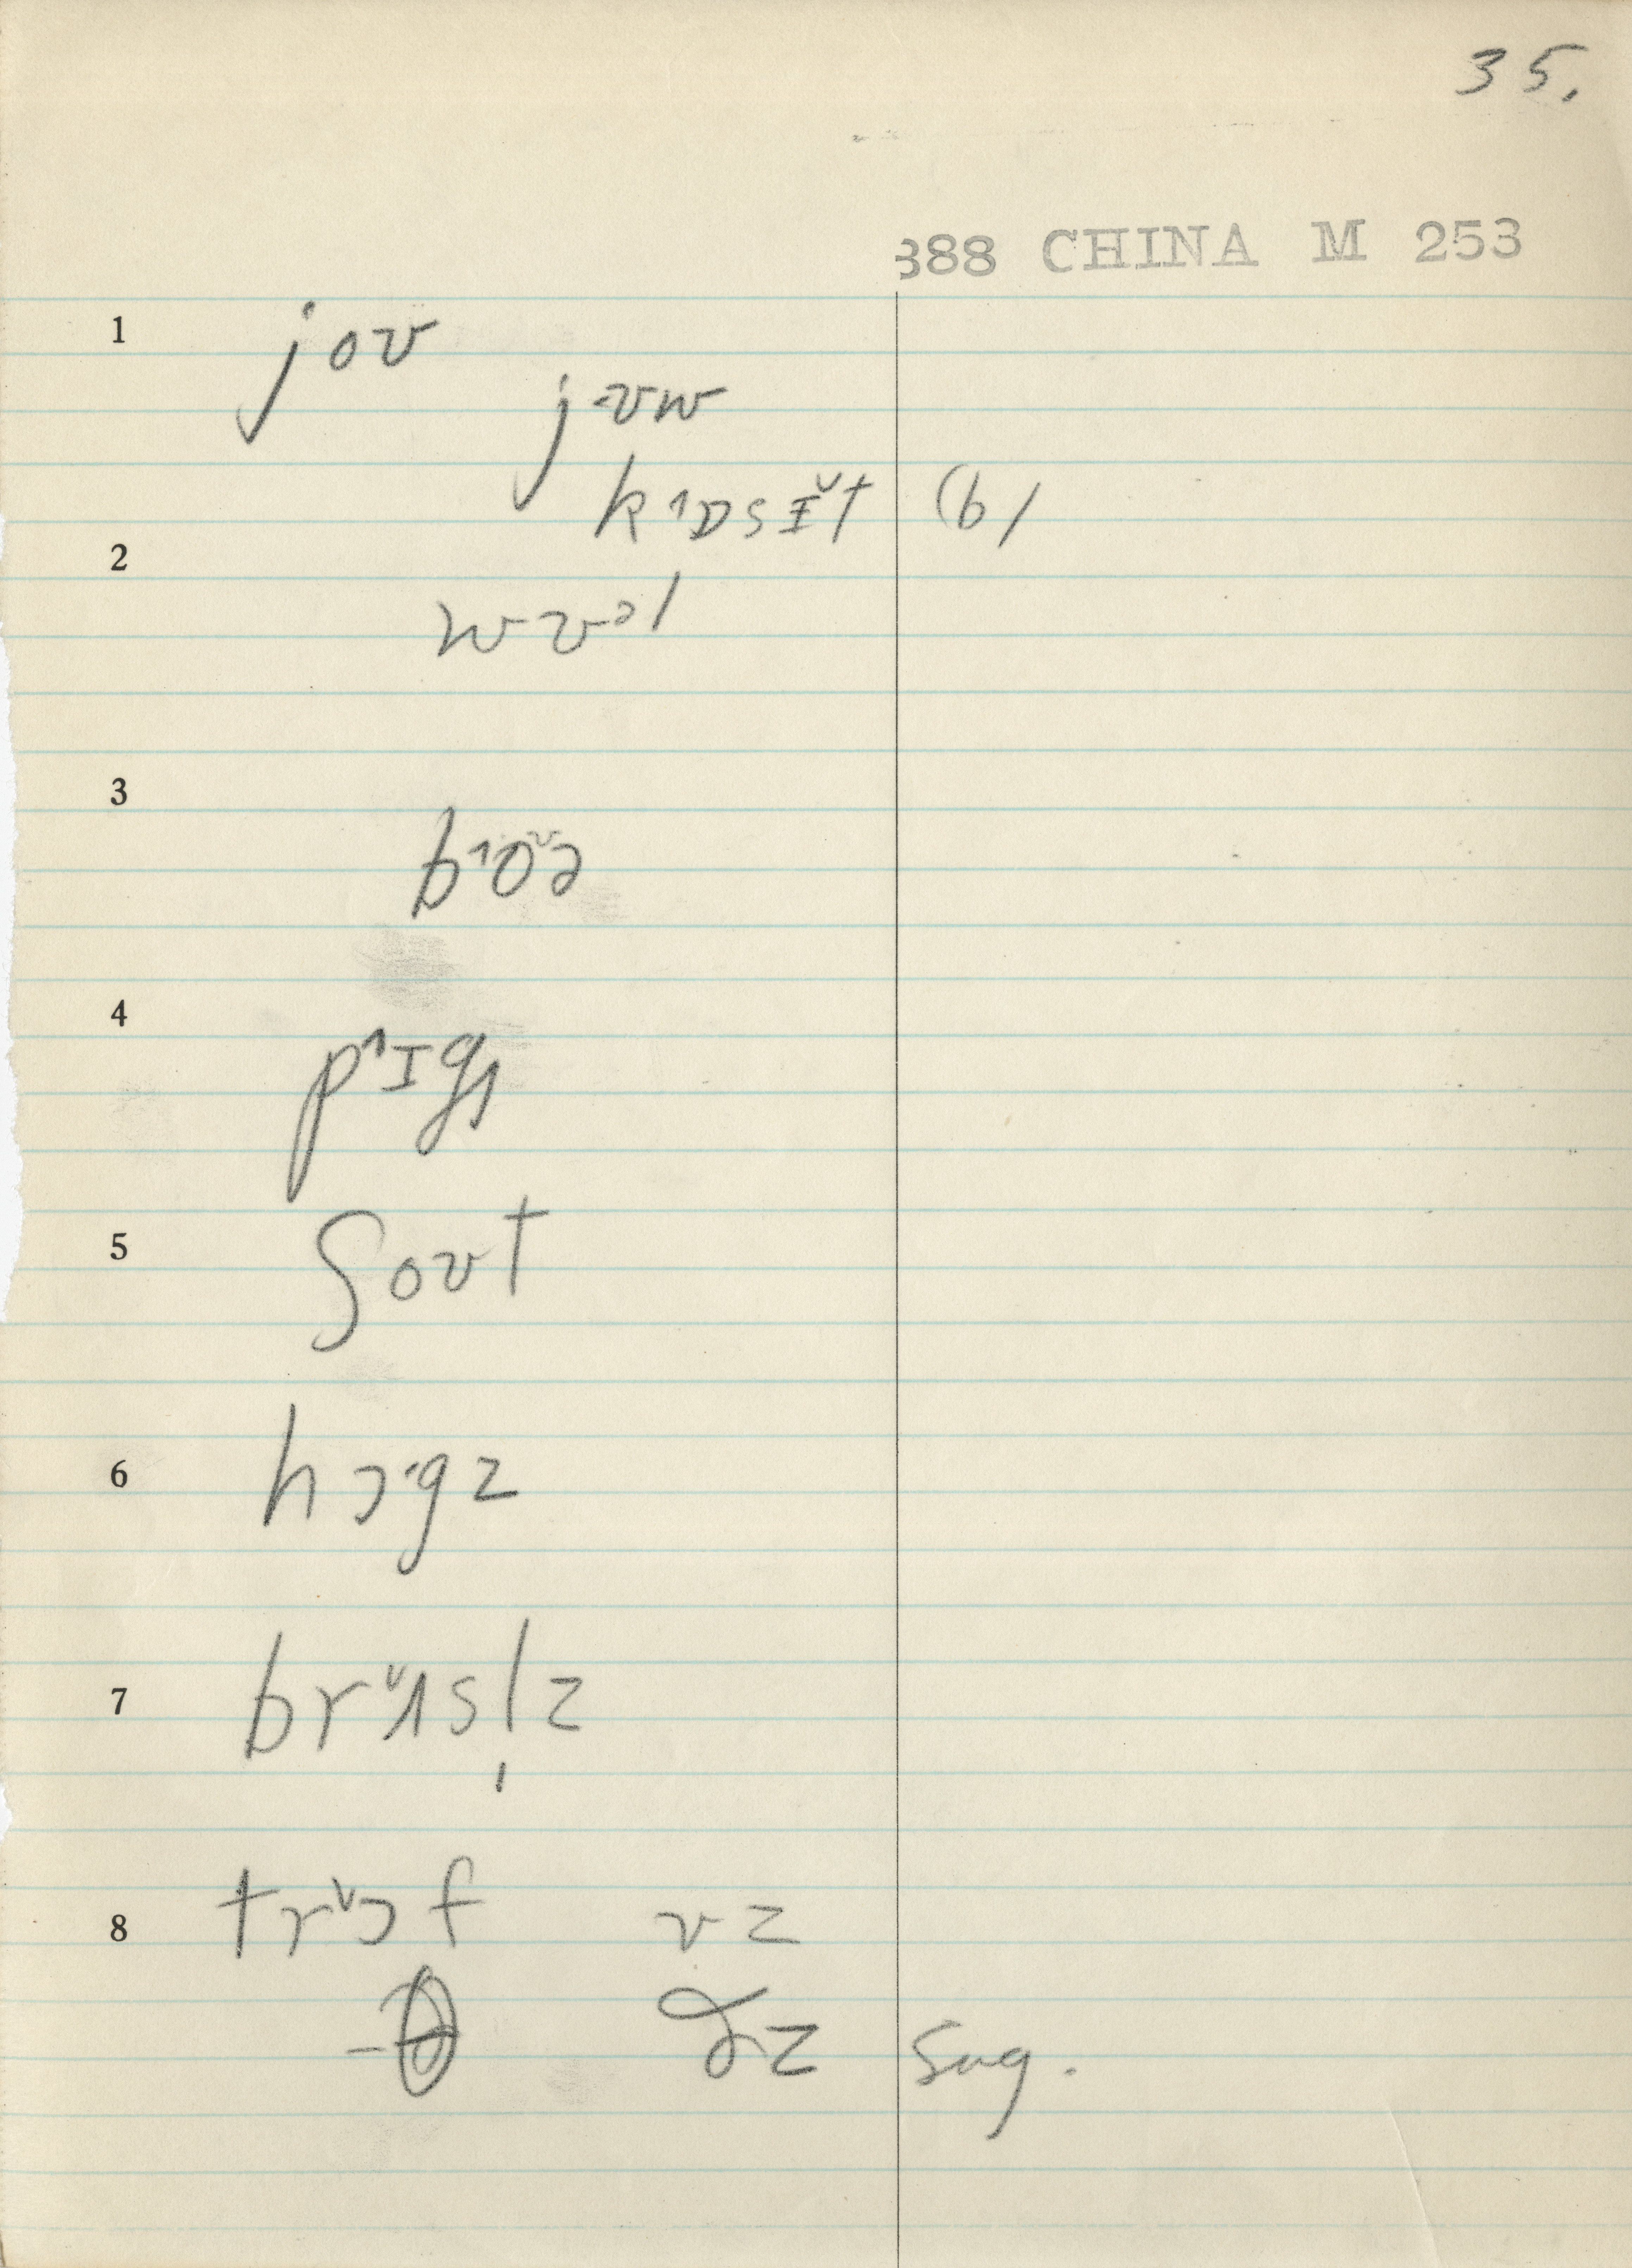 35.
388 CHINA M 253
1 joʊ
j-ʊw
k˄ɒsɪ̆t (b)
2
wʊᵊl
3
b˄oʊ̆ə
4
p˄ɪgʒ
5 ʃoʊt
6 hɔ·gz
7 brʌ̆sl̩z
8 trɔ̆f vz
-θ ðz sug.